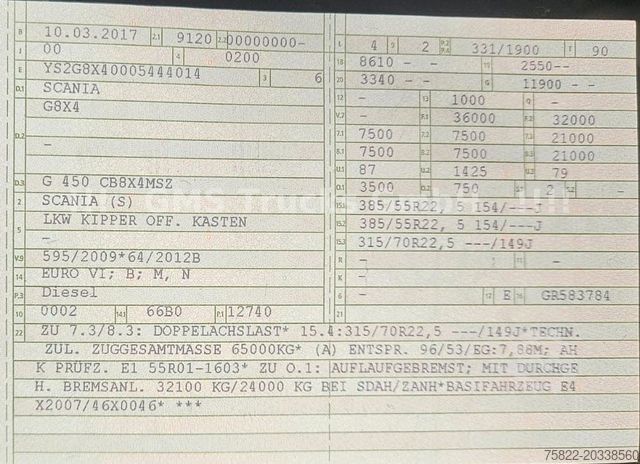 B 10.03.2017 2.1 9120 2.2 00000000-
J 00 4 0200
E YS2G8X40005444014 3 6
D.1 SCANIA
G8X4
D.2 -
D.3 G 450 CB8X4MSZ
2 SCANIA (S)
5 LKW KIPPER OFF. KASTEN
-
V.9 595/2009*64/2012B
14 EURO VI; B; M, N
P.3 Diesel
10 0002 14.1 66B0 P.1 12740
L 4 9 2 P.2 P.4 331/1900 T 90
18 8610 - - 19 2550--
20 3340 - - G 11900 - -
12 - 13 1000 Q -
V.7 - F.1 36000 F.2 32000
7.1 7500 7.2 7500 7.3 21000
8.1 7500 8.2 7500 8.3 21000
U.1 87 U.2 1425 U.3 79
O.1 3500 O.2 750 S.1 2 S.2 -
15.1 385/55R22, 5 154/---J
15.2 385/55R22, 5 154/---J
15.3 315/70R22,5 ---/149J
R - 11 -
K -
6 - 17 E 16 GR583784
21
22 ZU 7.3/8.3: DOPPELACHSLAST* 15.4:315/70R22,5 ---/149J*TECHN.
ZUL. ZUGGESAMTMASSE 65000KG* (A) ENTSPR. 96/53/EG:7,88M; AH
K PRÜFZ. E1 55R01-1603* ZU O.1: AUFLAUFGEBREMST; MIT DURCHGE
H. BREMSANL. 32100 KG/24000 KG BEI SDAH/ZANH*BASIFAHRZEUG E4
X2007/46X0046* ***
75822-20338560